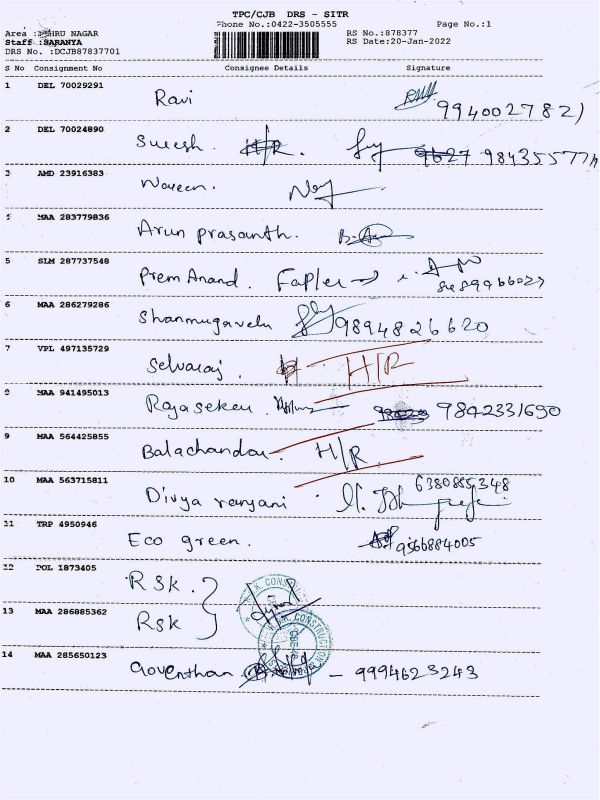 TPC/CJB DRS - SITR
Phone No.:0422-3505555
Page No.:1
Area :NEHRU NAGAR
RS No.:878377
Staff :SARANYA
RS Date:20-Jan-2022
DRS No. :DCJB87837701
S No Consignment No Consignee Details Signature
1 DEL 70029291 Ravi
2 DEL 70024890 Suresh. H/R.
3 AMD 23916383 Naveen.
4 MAA 283779836 Arun prasanth.
5 SLM 287737548 Prem Anand.
6 MAA 286279286 Shanmugavelu 9894826620
7 VPL 497135729 Selvaraj H/R
8 MAA 941495013 Rajasekar 9842331690
9 MAA 564425855 Balachandar. H/R.
10 MAA 563715811 Divya ranjani 6380885348
11 TRP 4950946 Eco green. 9566884005
12 POL 1873405 RSK.
13 MAA 286885362 RSK
14 MAA 285650123 Goventhan - 9994623243